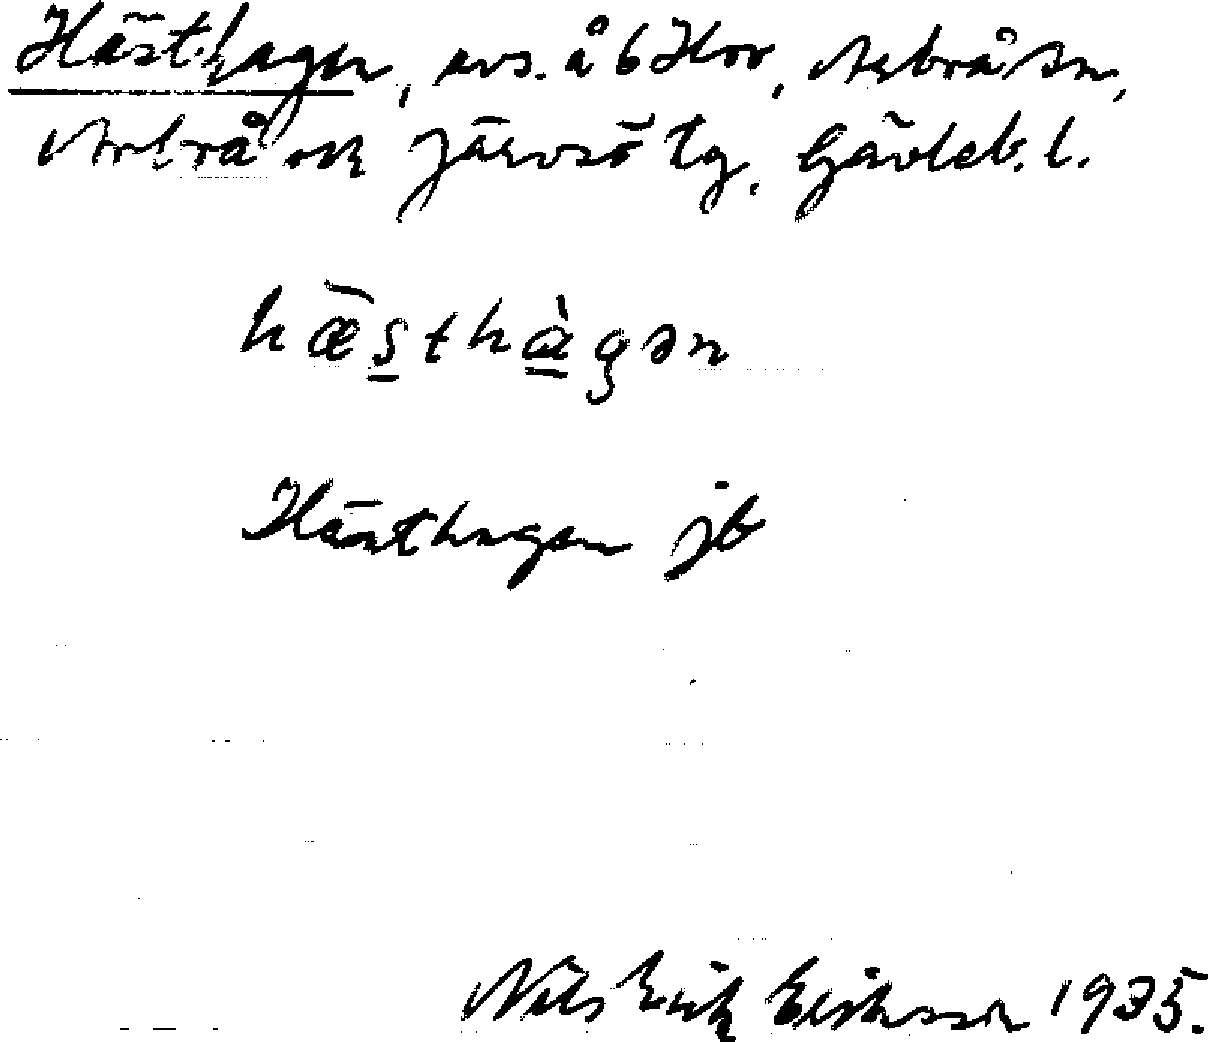 Hästhagen, avs. å 6 Kov, Arbrå sn,
Arbrå och Järvsö tg, Gävleb. l.
hæ̀sthàgən
Hästhagen jb
Nils Erik Eriksson 1935.